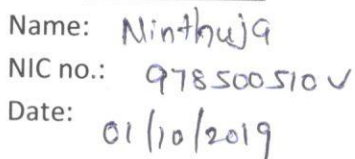 Name: Ninthuja
NIC no.: 978500510V
Date: 01/10/2019